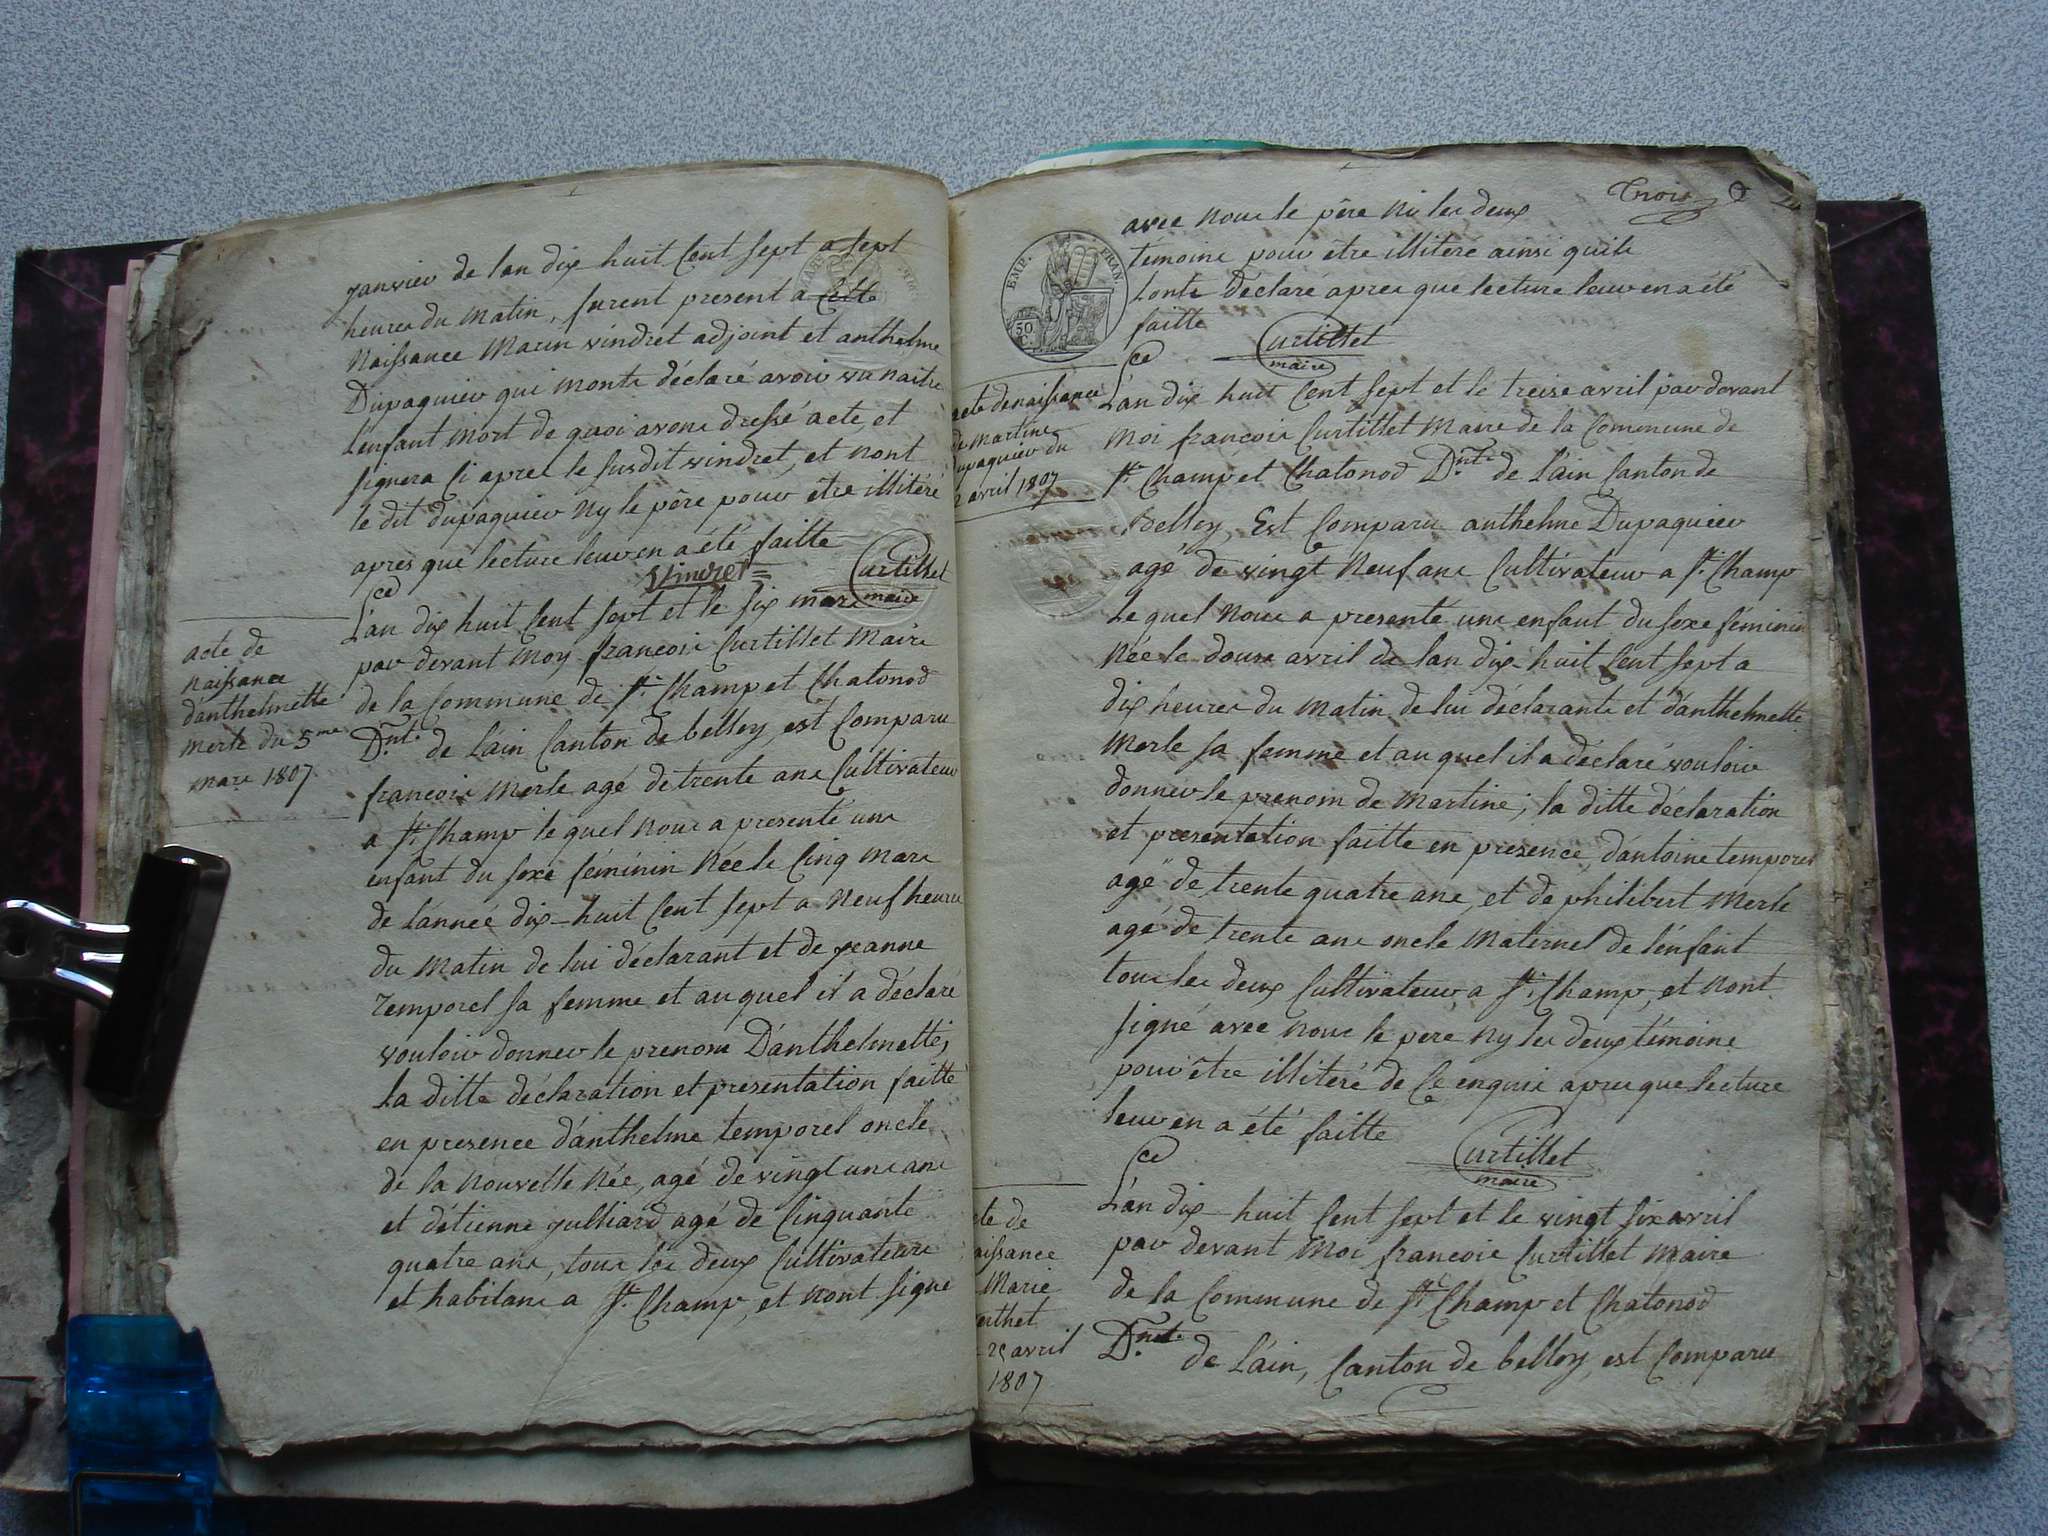 janvier de lan dix huit Cent sept a sept
heures du matin, furent present a Cette
Naissance Marin vindret adjoint et anthelme
Dupaquier qui monts déclaré avoir vu naitre
Lenfant mort de quoi avons dressé acte, et
signera Ci apres le susdit vindret, et nont
le dit dupaquier ny le père pour être illitéré
apres que lecture leur en a été faitte
Vindret
Curtillet
maire
acte de
naissance
d'anthelmette
merle du 5me
mars 1807
L'an dix huit Cent sept et le six mars
par devant moy francois Curtillet Maire
de la Commune de St. Champ et Chatonod
Dnt. de L'ain Canton de belley, est Comparu
francois Merle agé de trente ans Cultivateur
a St. Champ le quel nous a presenté une
enfant du sexe féminin Née le Cinq Mars
de l'année dix-huit Cent sept a Neuf heures
du Matin de lui déclarant et de jeanne
Temporel sa femme et au quel il a déclaré
vouloir donner le prenom D'anthelmette;
La ditte déclaration et presentation faitte
en presence d'anthelme temporel oncle
de la nouvelle Née, agé de vingt uns ans
et détienne julliard agé de Cinquante
quatre ans, tous les deux Cultivateurs
et habitans a St. Champ, et nont signé
Trois
EMP. FRAN.
50
C.
avec nous le père ni les deux
témoins pour être illitéré ainsi quils
Lonts déclaré apres que lecture leur en a été
faitte
Curtillet
maire
acte de naissance
de martine
dupaquier du
avril 1807
L'an dix huit Cent Sept et le treise avril par devant
Moi françois Curtillet Maire de la Commune de
St. Champ et Chatonod Dnt. de L'ain Canton de
Belley, Est Comparu anthelme Dupaquier
agé de vingt Neuf ans Cultivateur a St. Champ
Le quel Nous a presenté une enfant du sexe féminin
Née le douse avril de lan dix-huit Cent sept a
dix heures du Matin de lui déclarants et d'anthelmette
Merle sa femme et au quel il a déclaré vouloir
donner le prenom de Martine; la ditte déclaration
et presentation faitte en presence d'antoine temporel
agé de trente quatre ans, et de philibert Merle
agé de trente ans oncle Maternel de l'enfant
tous les deux Cultivateur a St. Champ, et nont
signé avec nous le pere ny les deux témoins
pour être illitéré de Ce enquis apres que lecture
leur en a été faitte
Curtillet
maire
cte de
aissance
Marie
erthet
25 avril
1807
L'an dix huit Cent Sept et le vingt six avril
par devant Moi francois Curtillet Maire
de la Commune de St Champ et Chatonod
Dnt. de L'ain, Canton de belley, est Comparu